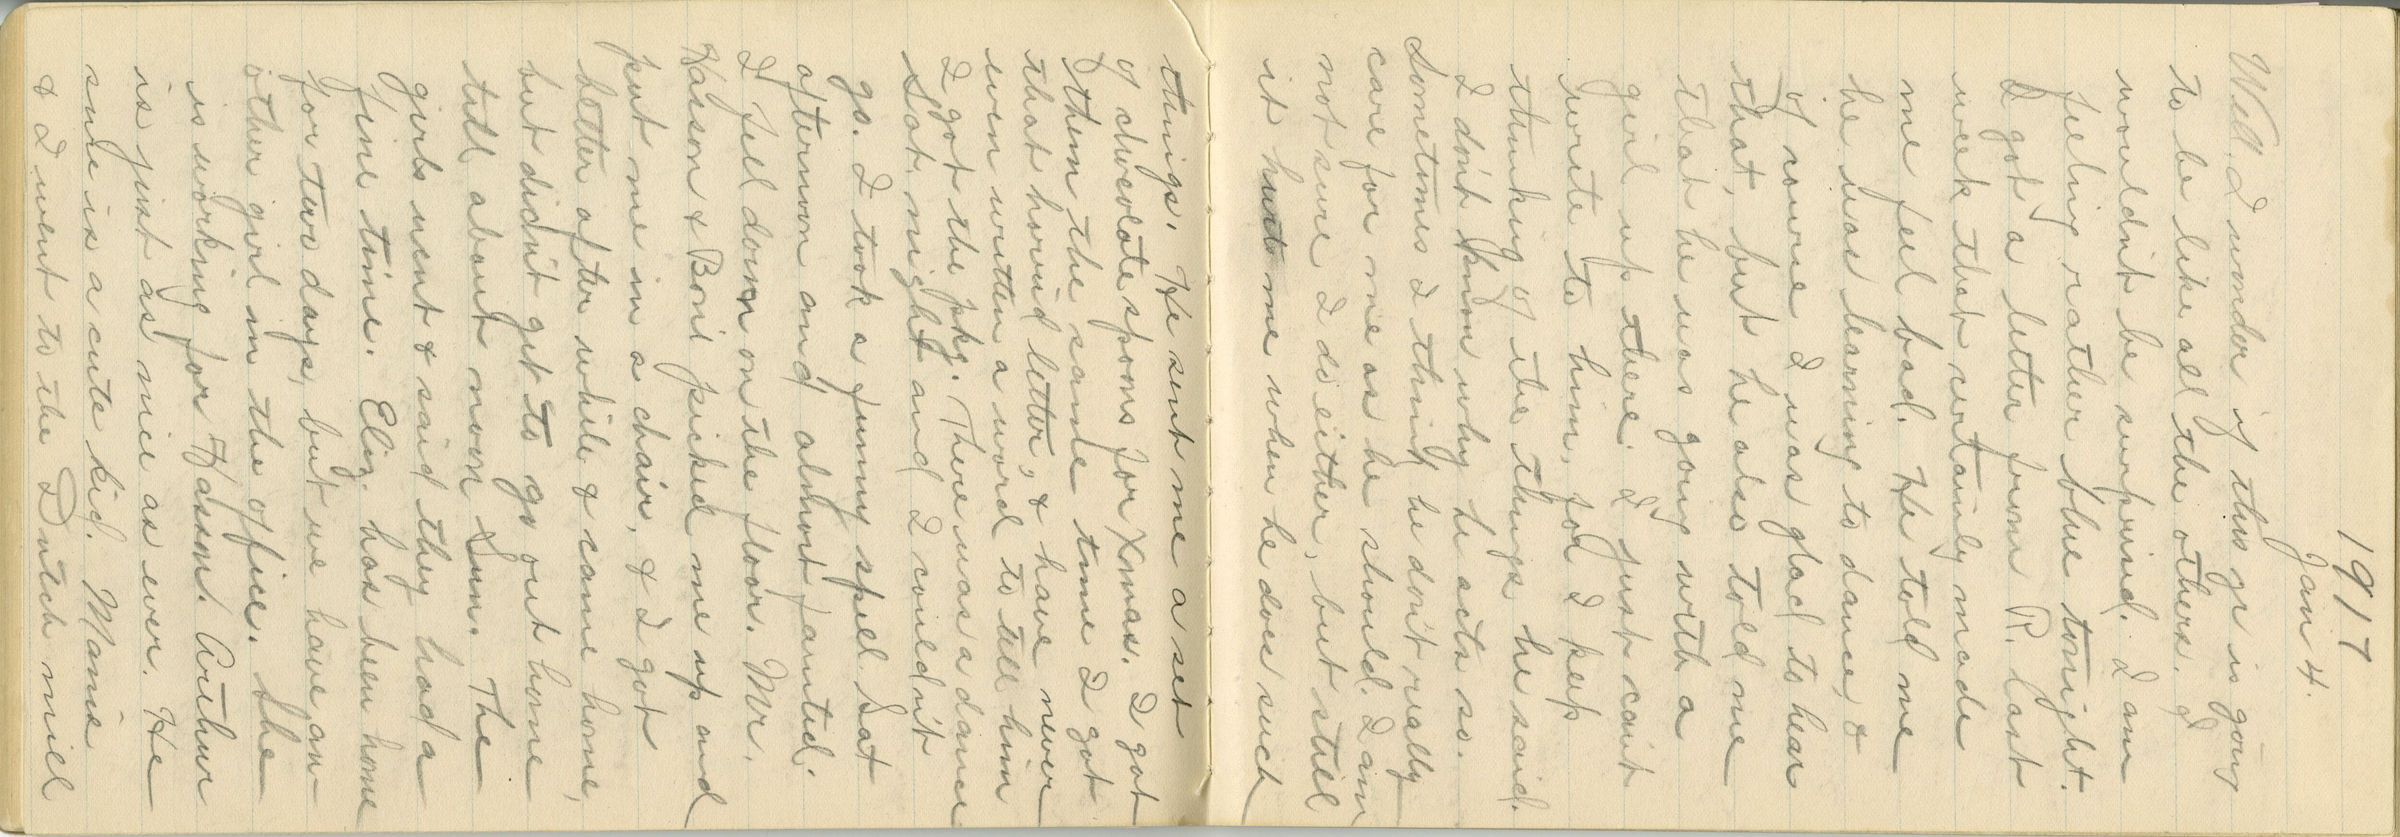 1917
Jan 4.
Well I wonder if this yr is going
to be like all the others. I
wouldn't be surprised. I am
feeling rather blue tonight.
I got a letter from R. last
week that certainly made
me feel bad. He told me
he was learning to dance, &
of course I was glad to hear
that, but he also told me
that he was going with a
girl up there. I just can't
write to him, for I keep
thinking of the things he said.
I don't know why he acts so.
Sometimes I think he don't really
care for me as he should. I am
not sure I do either, but still
it hurts me when he does such
things. He sent me a set
of chocolate spoons for Xmas. I got
them the same time I got
that horrid letter, & have never
even written a word to tell him
I got the pkg. There was a dance
Sat. night and I couldn't
go. I took a funny spell Sat
afternoon and almost fainted.
I fell down on the floor. Mr.
Hasson & Boni picked me up and
put me in a chair, & I got
better after while & came home,
but didn't get to go out home
till about noon Sun. The
girls went & said they had a
fine time. Eliz. has been home
for two days, but we have an-
other girl in the office. She
is working for Hasson. Arthur
is just as nice as ever. He
sure is a cute kid. Mamie
& I went to the Dutch mill